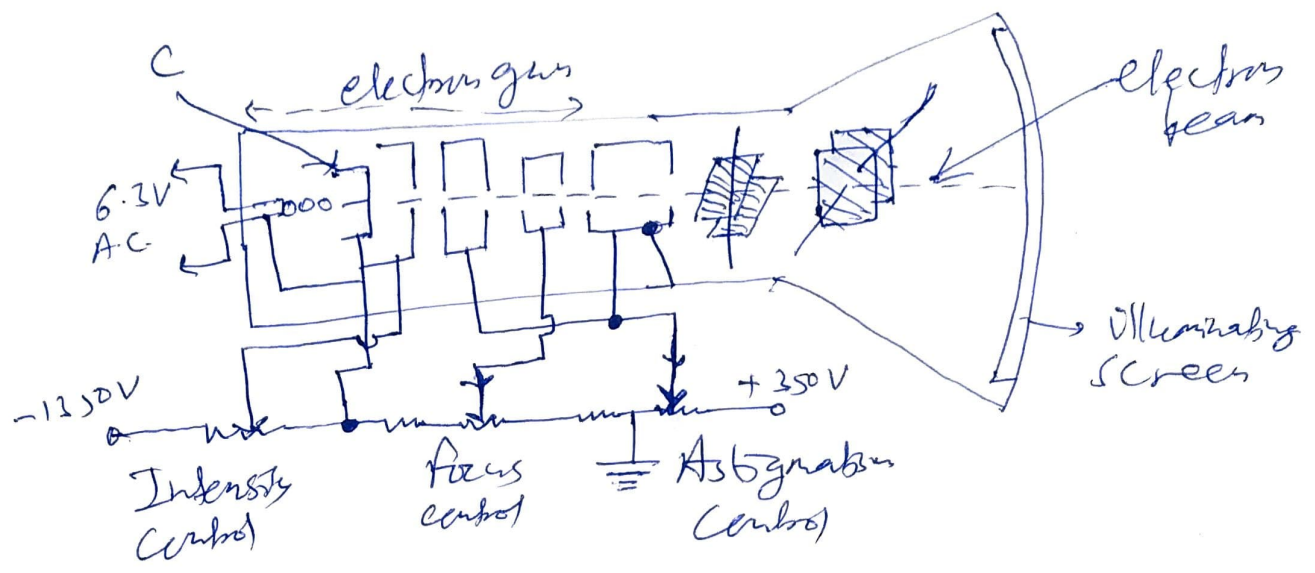 C
electron gun
electron
beam
6.3V
A.C.
illuminating
screen
-1350V
+350V
Intensity
control
focus
control
Astigmatism
control